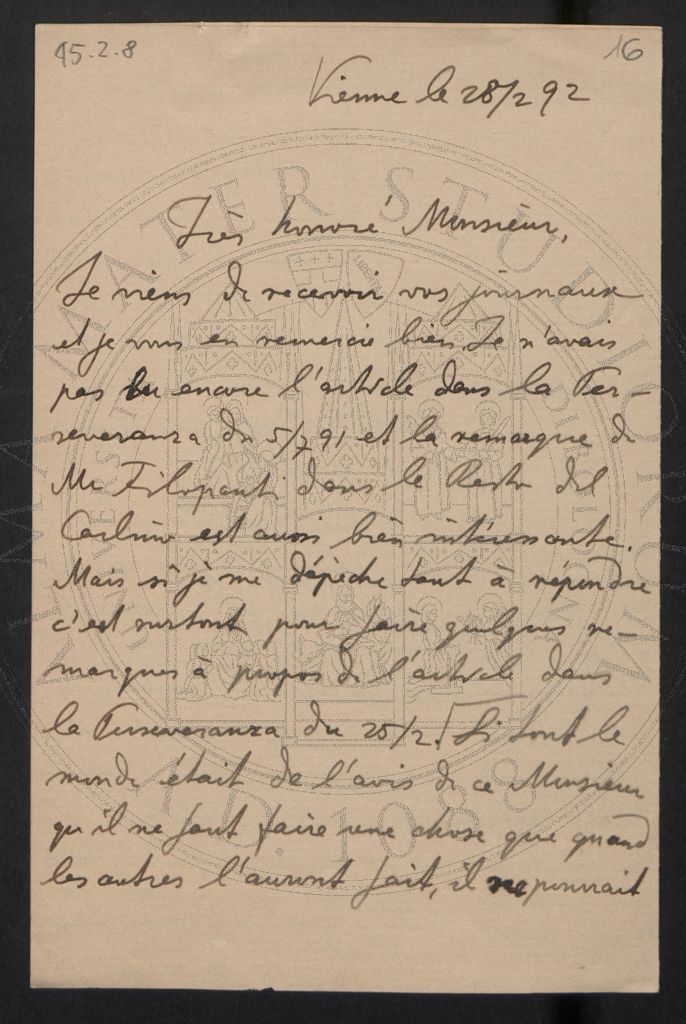 45.2.8
16
Vienne le 28/2 92
Très honoré Monsieur,
Je viens de recevoir vos journaux
et je vous en remercie bien. Je n'avais
pas lu encore l'article dans la Per-
severanza du 5/7 91 et la remarque de
Mr Filopanti dans le Resto del
Carlino est aussi bien intéressante.
Mais si je me dépêche tant à répondre
c'est surtout pour faire quelques re-
marques à propos de l'article dans
la Perseveranza du 25/2. Si tout le
monde était de l'avis de ce Monsieur
qu'il ne faut faire une chose que quand
les autres l'auront fait, il ne pourrait
ALMA MATER STUDIORUM
A.D. 1088